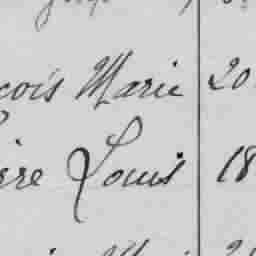 çois Marie 20
rre Louis 18